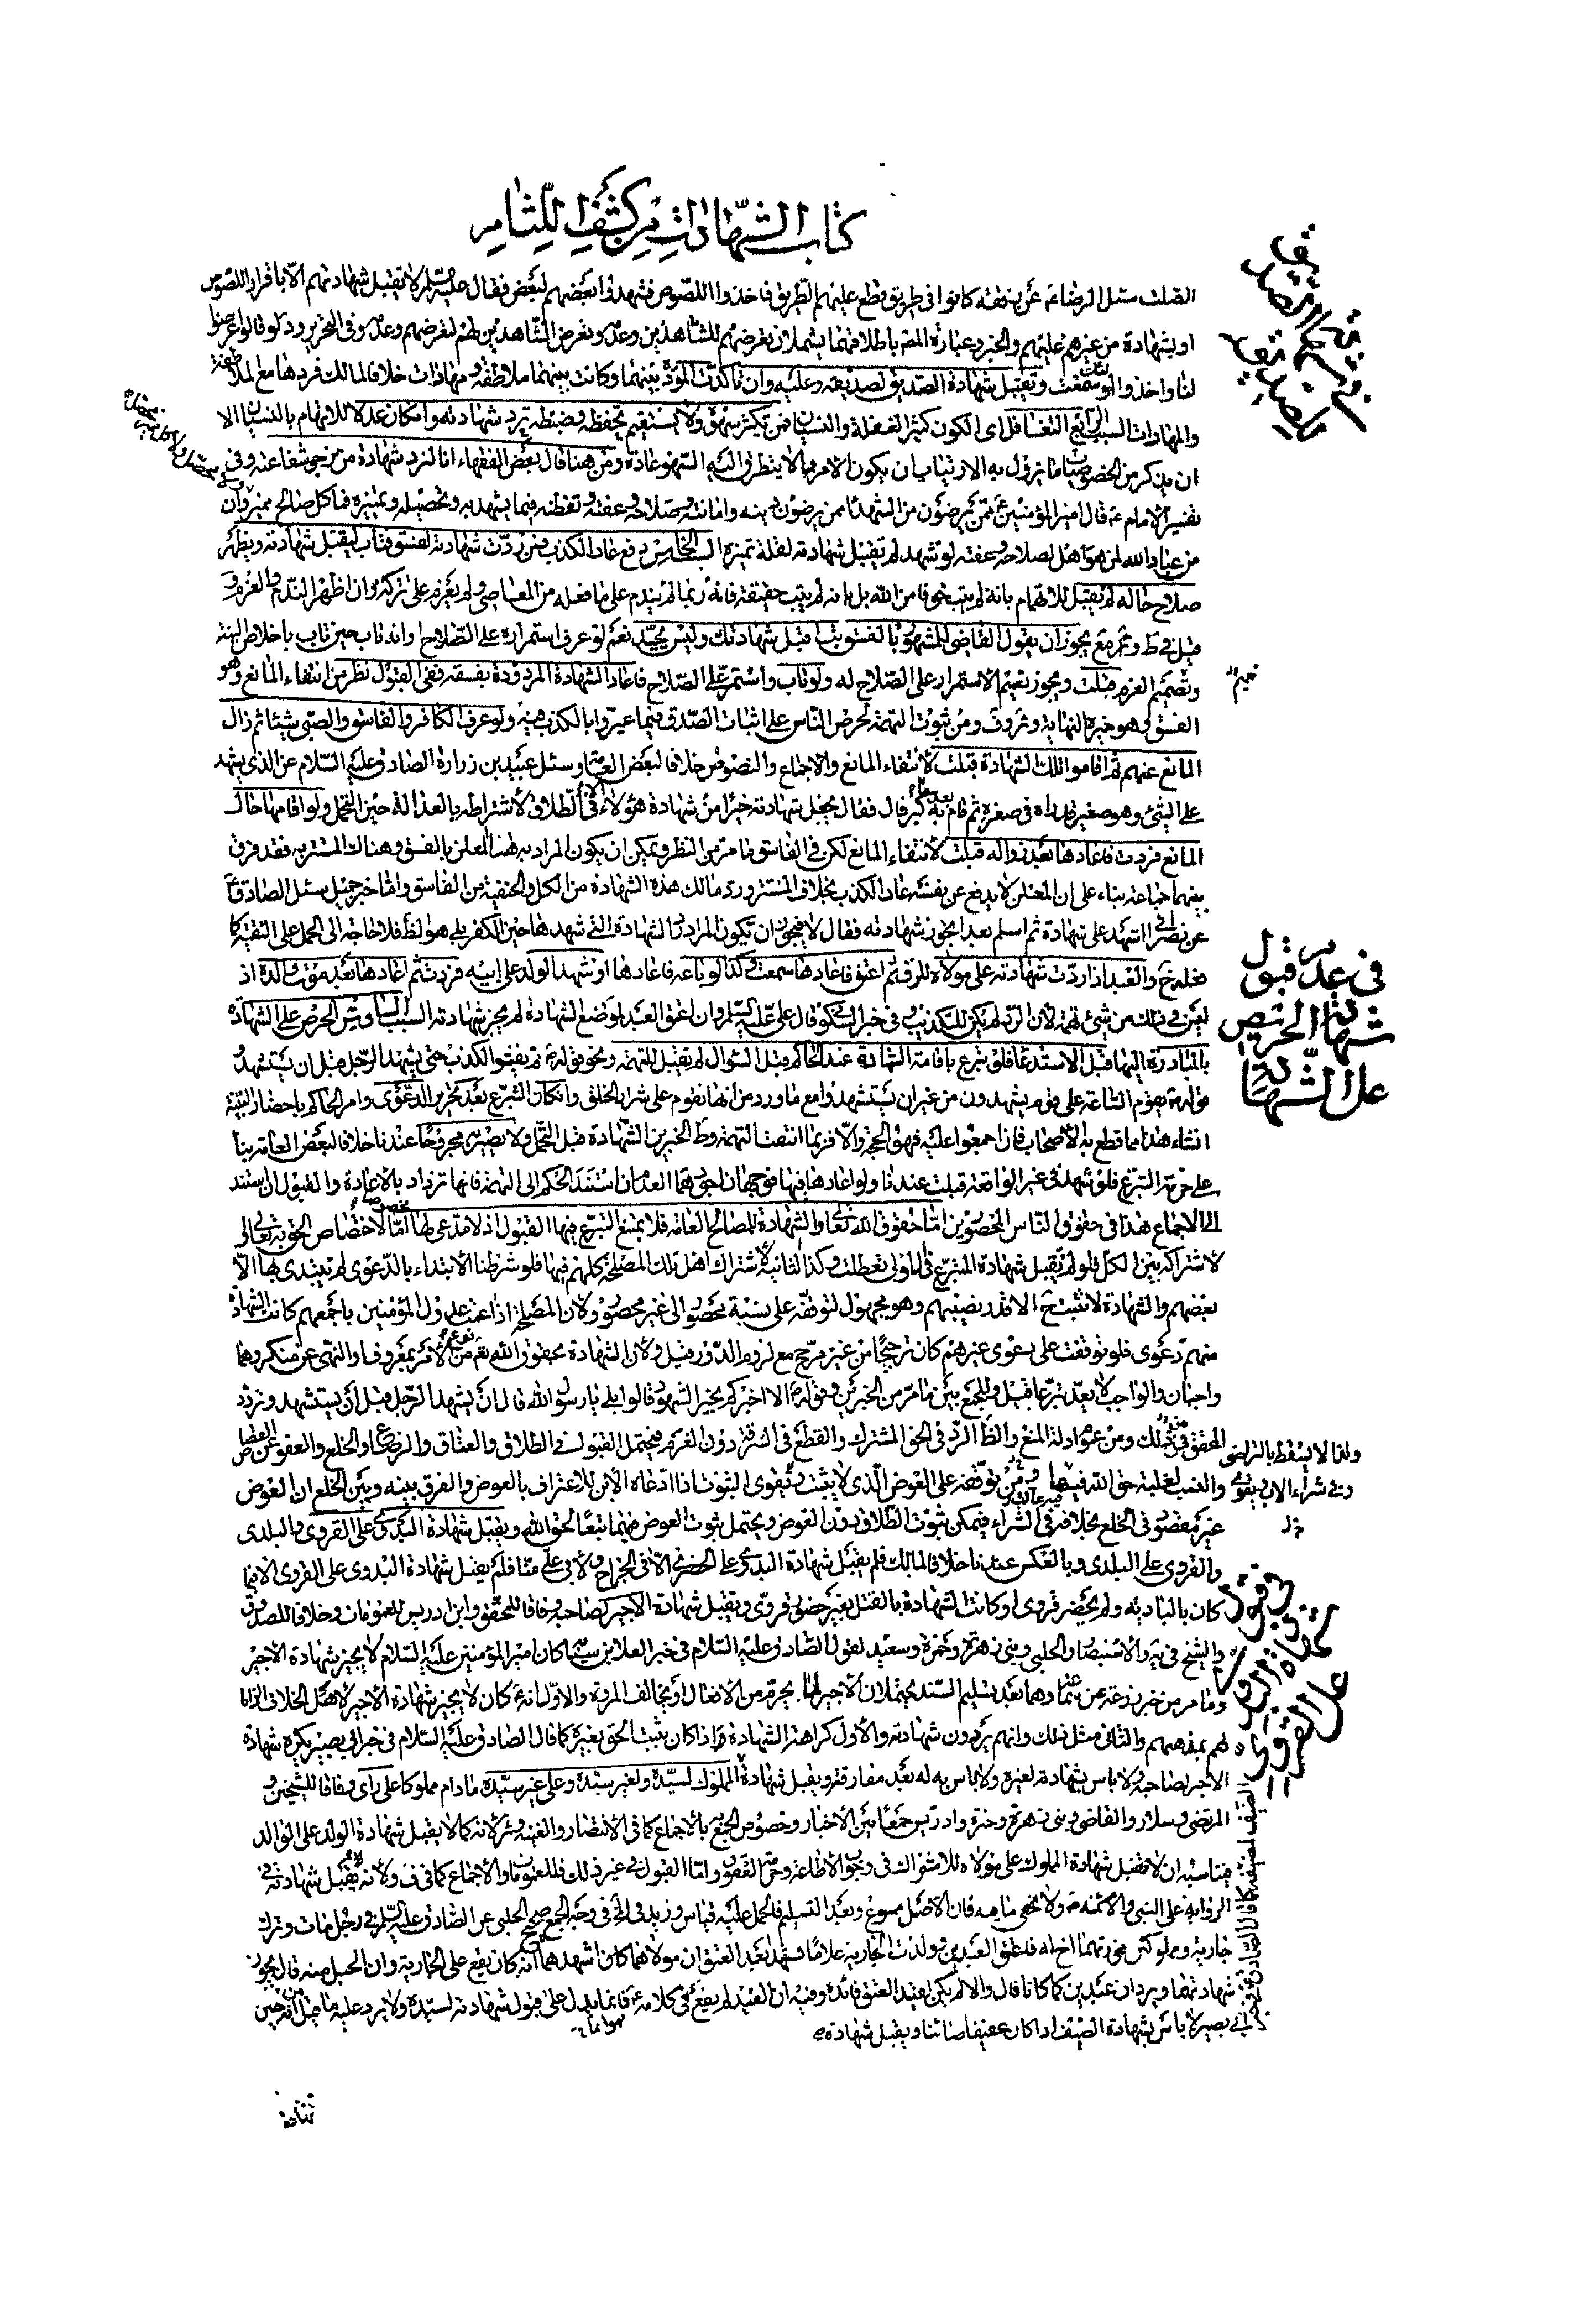 كتاب الشهادات من كشف اللثام
الصلت سئل الرضا ع عن رفقة كانوا في طريق قطع عليهم الطريق فاخذوا اللصوص فشهدوا بعضهم لبعض فقال عليه السلم لا تقبل شهادتهم الا باقرار اللصوص
او بشهادة من غيرهم عليهم والخبر وعبارة المص باطلاقهما يشملان تعرضهم للشاهدين وعدمه وتعرض الشاهدين لهم لتعرضهم وعدمه وفي التحرير ود لو قالوا عرضوا
لنا واخذوا اولئك سمعت وتقبل شهادة الصديق لصديقه وعليه وان تاكدت المودة بينهما وكانت بينهما ملاطفة ومهاداة خلافا لمالك فردها مع الملاطفة
والمهادات السبب الرابع التغافل اى الكون كثير الغفلة والنسيان فمن يكثر سهوه ولا يستقيم تحفظه وضبطه ترد شهادته وان كان عدلا للاتهام بالنسيان الا
ان يذكر من الخصوصيات ما يزول به الارتياب او ان يكون الامر مما لا يتطرق اليه السهو عادة ومن هنا قال بعض الفقهاء انا لنرد شهادة من نرجو شفاعته وفي
تفسير الامام ع قال امير المؤمنين ع ممن ترضون من الشهداء ممن ترضون دينه وامانته وصلاحه وعفته وتيقظه فيما يشهد به وتحصيله وتمييزه فما كل صالح مميز وان
من عباد الله لمن هو اهل لصلاحه وعفته لو شهد لم تقبل شهادته لقلة تميزه السبب الخامس دفع عار الكذب فمن ردت شهادته لفسق فتاب لتقبل شهادته ويظهر
صلاح حاله لم تقبل للاتهام بانه لم يتب خوفا من الله بل بانه لم يتب حقيقة فانه ربما لم يندم على ما فعله من المعاصي ولم يعزم على تركه وان اظهر الندم والعزم و
قيل في ط وئر مع يجوز ان يقول القاضي للمشهور بالفسق تب اقبل شهادتك وليس بجيد نعم لو عرف استمراره على الصلاح او انه تاب حين تاب باخلاص النية
وتصميم العزم قبلت ويجوز تعميم الاستمرار على الصلاح له ولو تاب واستمر على الصلاح فاعاد الشهادة المردودة بفسقه ففي القبول نظر من انتفاء المانع وهو
الفسق وهو خيرة النهاية وئر وف ومن ثبوت التهمة لحرص الناس على اثبات الصدق فيما عيروا بالكذب فيه ولو عرف الكافر والفاسق والصبي شيئا ثم زال
المانع عنهم ثم اقاموا تلك الشهادة قبلت لانتفاء المانع والاجماع والنصوص خلافا لبعض العامة وسئل عبيد بن زرارة الصادق عليه السلام عن الذى يشهد
على الشئ وهو صغير قد راه في صغره ثم قام به بعد ما كبر قال فقال تجعل شهادته خيرا من شهادة هؤلاء الا في الطلاق لاشتراطه بالعدالة حين التحمل ولو اقامها حال
المانع فردت فاعادها بعد زواله قبلت لانتفاء المانع لكن في الفاسق ما مر من النظر ويمكن ان يكون المراد به هنا المعلن بالفسق وهناك المستتر به فقد فرق
بينهما جماعة بناء على ان المعلن لا يدفع عن نفسه عار الكذب بخلاف المستتر ورد مالك هذه الشهادة من الكل والحنفية من الفاسق واما خبر جميل سئل الصادق ع
عن نصراني اشهد على شهادة ثم اسلم بعد ايجوز شهادته فقال لا فيجوز ان تكون المراد بالشهادة التي شهدها حين الكفر بل هو الظ فلا حاجة الى الحمل على التقية كما
فعله خ والعبد اذا ردت شهادته على مولاه للرق ثم اعتق فاعادها سمعت وكذا لو باعه فاعادها او شهد الولد على ابيه فردت ثم اعادها بعد موت والده اذ
ليس في ذلك من شئ تهمة لان الرد لم يكن للتكذيب وفي خبر السكوني قال علي عليه السلم وان اعتق العبد لموضع الشهادة لم يجز شهادته السبب السادس الحرص على الشهادة
بالمبادرة اليها قبل الاستدعاء فلو تبرع باقامة الشهادة عند الحاكم قبل السؤال لم تقبل للتهمة ونحو قوله ثم يفشوا الكذب حتى يشهد الرجل قبل ان يستشهد و
قوله ع تقوم الساعة على قوم يشهدون من غير ان يستشهدوا مع ما ورد من انها تقوم على شرار الخلق وان كان التبرع بعد تحرير الدعوى وامر الحاكم باحضار البينة
انشاء هذا مما قطع به الاصحاب فان اجمعوا عليه فهو الحجة والا فربما انتفت التهمة وظ الخبرين الشهادة قبل التحمل ولا يصير به مجروحا عندنا خلافا لبعض العامة بناء
على حرمة التبرع فلو شهد في غير الواقعة قبلت عندنا ولو اعادها فيها فوجهان اجودهما العدم ان استند الحكم الى التهمة فانها تزداد بالاعادة والقبول ان استند
الى الاجماع هذا في حقوق الناس المخصوصين اما حقوق الله تعالى والشهادة للمصالح العامة فلا يمنع التبرع فيها القبول اذ لا مدعى لها اما لاختصاص الحق به تعالى او
لاشتراكه بين الكل فلو لم تقبل شهادة المتبرع في الاولى تعطلت وكذا الثانية لاشتراك اهل تلك المصلحة كلهم فيها فلو شرطنا الابتداء بالدعوى لم يبتدى بها الا
بعضهم والشهادة لا تثبت ح الا قدر نصيبهم وهو مجهول لتوقفه على نسبة محصور الى غير محصور ولان المصلحة اذا عمت عدول المؤمنين باجمعهم كانت الشهادة
منهم دعوى فلو توقفت على دعوى غيرهم كان ترجيحا من غير مرجح مع لزوم الدور قيل ولان الشهادة بحقوق الله تعم نوع من الامر بمعروف او النهى عن منكر وهما
واجبان والواجب لا يعد تبرعا قيل وللجمع بين ما مر من الخبرين وقوله ع الا اخبركم بخير الشهود قالوا بلى يا رسول الله قال ان يشهد الرجل قبل ان يستشهد وتردد
المحقق في ذلك ومن عموم ادلة المنع والظ الرد في الحق المشترك والقطع في السرقة دون الغرم فيحتمل القبول في الطلاق والعتاق والرضاع والخلع والعفو عن القصاص
ولذا لا يسقط بالتراضي
والنسب لغلبة حق الله فيها ومن توقفه على العوض الذى لا يثبت ويقوى الثبوت اذا ادعاه الابن للاعتراف بالعوض والفرق بينه وبين الخلع ان العوض
وفي شراء الاب
غير مقصود في الخلع بخلافه في الشراء فيمكن ثبوت الطلاق دون العوض ويحتمل ثبوت العوض فيهما تبعا لحق الله ويقبل شهادة البدوى على القروى والبلدى
والقروى على البلدى وبالعكس عندنا خلافا لمالك فلم يقبل شهادة البدوى على الحضرى الا في الجراح ولابي على منا فلم يقبل شهادة البدوى على القروى الا فيما
كان بالبادية ولم يحضر قروى او كانت الشهادة بالقتل بغير حضور قروى ويقبل شهادة الاجير لصاحبه وفاقا للمحقق وابن ادريس للعمومات وخلافا للصدوق
والشيخ في يه والاستبصار والحلبي وبني زهرة وحمزة وسعيد لقول الصادق عليه السلام في خبر العلا بن سيابة كان امير المؤمنين عليه السلام لا يجيز شهادة الاجير
وما مر من خبر زرعة عن سماعة وهما بعد تسليم السند يحتملان
لهم بمذهبهم والثاني مثل ذلك وانهم يردون شهادته والاول كراهة الشهادة اذا كان يثبت الحق بغيره كما قال الصادق عليه السلام في خبر ابي بصير يكره شهادة
الاجير لصاحبه ولا باس بشهادته لغيره ولا باس به له بعد مفارقته ويقبل شهادة المملوك لسيده ولغير سيده وعلى غير سيده ما دام مملوكا على راى وفاقا للشيخين و
المرتضى وسلار والقاضي وبني زهرة وحمزة وادريس جمعا بين الاخبار وخصوص الجمع بالاجماع كما في الانتصار والغنية وئر ولانه كما لا يقبل شهادة الولد على الوالد
فيناسبه ان لا تقبل شهادة المملوك على مولاه للاشتراك في وجوب الاطاعة وحرمة العقوق واما القبول في غير ذلك فللعمومات والاجماع كما في ف ولانه يقبل شهادته في
الرواية على النبي والائمة ع ولا يخفى ما فيه فان الاصل ممنوع وبعد التسليم فالحمل عليه قياس وزيد في الخ في وجه الجمع صحيح الحلبي عن الصادق عليه السلم في رجل مات وترك
جارية ومملوكين فورثهما اخ له فاعتق العبدين وولدت الجارية غلاما فشهدا بعد العتق ان مولاهما كان اشهدهما انه كان يقع على الجارية وان الحبل منه قال يجوز
شهادتهما ويردان عبدين كما كانا قال والا لم يكن لقيد العتق فائدة وفيه ان القيد لم يقع في كلامه ع فانما يدل على قبول شهادته لسيده ولا يرد عليه ما قيل من
ابي بصير لا باس بشهادة الضيف اذا كان عفيفا صائنا ويقبل شهادة
في عدم قبول
شهادة الحريص
على الشهادة